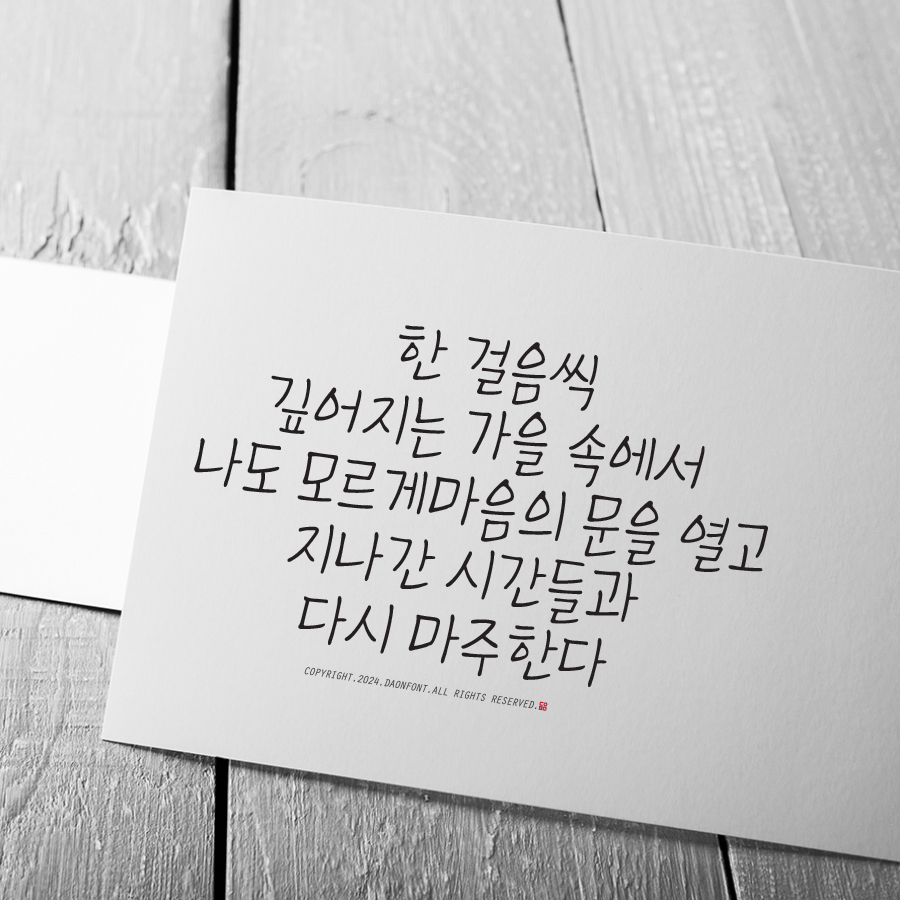 한 걸음씩
깊어지는 가을 속에서
나도 모르게마음의 문을 열고
지나간 시간들과
다시 마주한다
COPYRIGHT.2024.DAONFONT.ALL RIGHTS RESERVED.